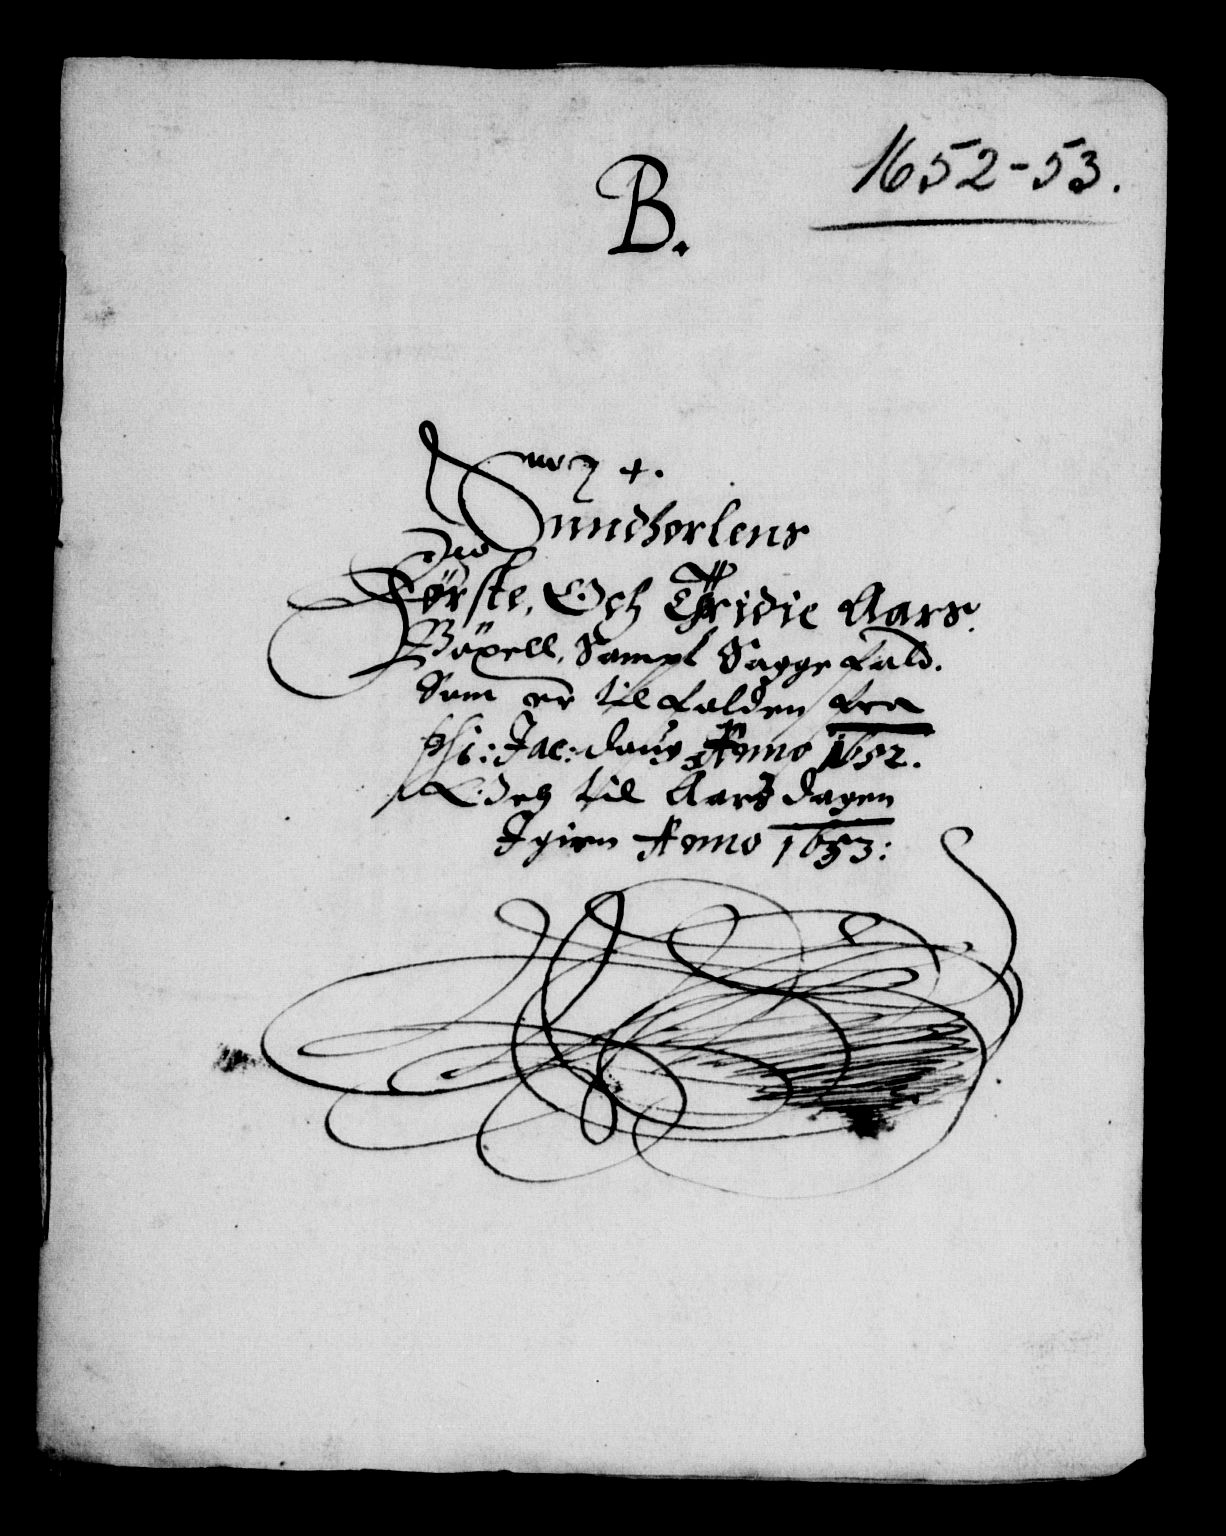 1652-53.
B.
No 7 +.
Sundhorlens
Förste, Och Thridie Aars
Böxell, Sampt Sagge fald.
Som er til falden fra
Phi: Jac: daug Anno 1652.
Och til Aarsdagen
Igien Anno 1653: